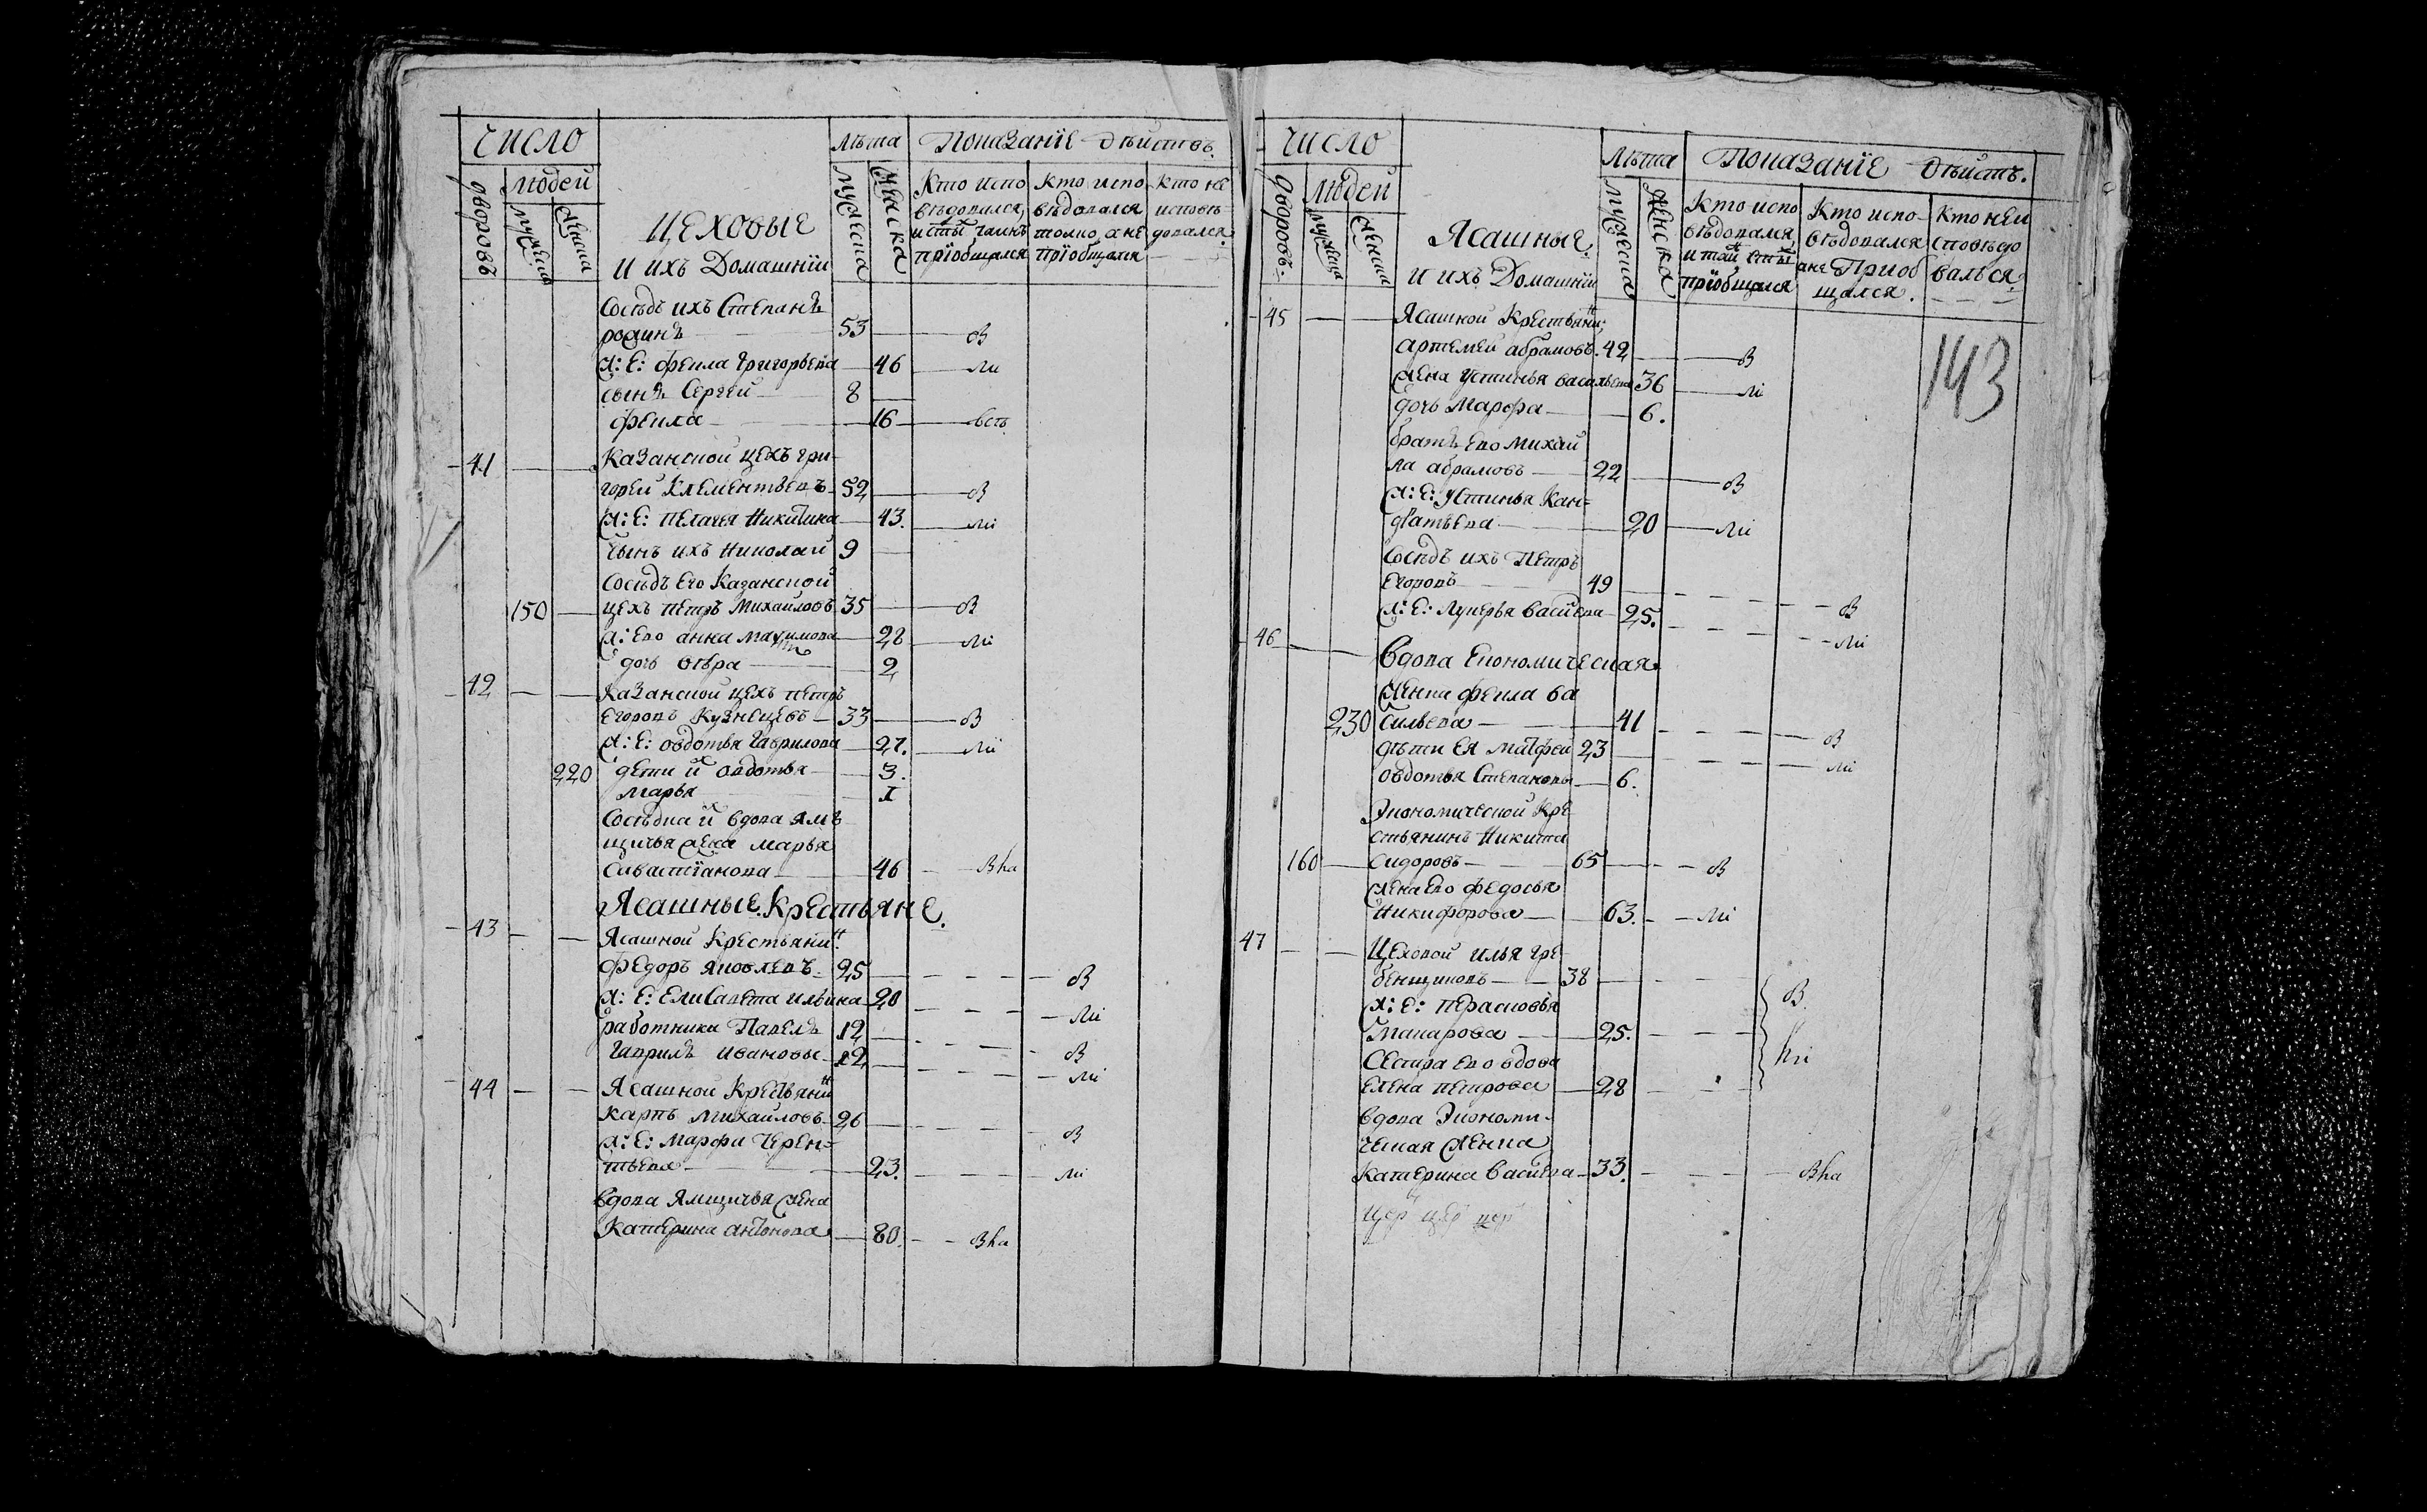 число
лѣта Показанїе дѣйствъ.
дворовъ людей
мужеска женска
ЦЕХОВЫЕ
и ихъ Домашнїи
мужеска женска
Кто испо вѣдовался, и стыхъ таинъ прїобщался
Кто испо вѣдовался толко, а не прїобщался
Кто не исповѣ довался
Сосѣдъ ихъ Степанъ
родинъ 53 в
ж: Е: фекла Григорьева 46 ли
сынъ Сергей 8
фекла 16 всть
41 Казанской цехъ гри-
горей Клементьевъ 52 в
ж: Е: Пелагея Никитина 43. ли
Сынъ ихъ Николай 9
Сосѣдъ его Казанской
150 цехъ Петръ Михайловъ 35 в
ж: Ево анна Маѯимова 28 ли
дочь вѣра 2
42 Казанской цехъ Петръ
Егоровъ Кузнецовъ 33 в
ж: Е: овдотья Гаврилова 27. ли
220 дети их овдотья 3.
Марья 1
Сосѣдка их вдова ямъ
щичья жена марья
Сивастїанова 46 вha
Ясашные Крестьяне.
43 Ясашной Крестьянинъ
федоръ яковлевъ 25 в
ж: Е: Елисавета ильина 20 ли
работники Павелъ 12 в
Гаврилъ ивановы 12 ли
44 Ясашной Крестьянинъ
карпъ Михайловъ 26 в
ж: Е: Марфа Терен=
тьева 23. ли
вдова Ямщичья жена
Катерина антонова 80. вha
число
Лѣта Показанїе дѣйстъ.
дворовъ людей
мужеска женска
Ясашные
и ихъ Домашнїи
мужеска женска
Кто испо вѣдовался, и таинъ стыхъ прїобщался
Кто испо- вѣдовался а не Приоб щался.
Кто неи сповѣдо вался
143
45 Ясашной Крестьянинъ
артемей абрамовъ. 42 в
жена устинья васильева 36 ли
дочь Марфа 6.
братъ ево михай
ла абрамовъ 22 в
ж: Е: устинья Кан=
дратьева 20 ли
Сосѣдъ ихъ Петръ
Егоровъ 49 в
ж: Е: Лукерья васильева 25. ли
46 вдова Економическая
женка фекла ва
230 сильева 41 в
дѣти ея матфей 23 ли
овдотья Степановы 6.
Экономической Кре
стьянинъ Никита
160 Сидоровъ 65 в
жена ево федосья
Никифорова 63. ли
47 Цеховой илья гре
бенщиковъ 38 в
ж: Е: Перасковья
макарова 25. hi
Сестра ево вдова
Елена Петрова 28
вдова Экономи-
ческая женка
Катерина васильева 33. вha
цер цер цер